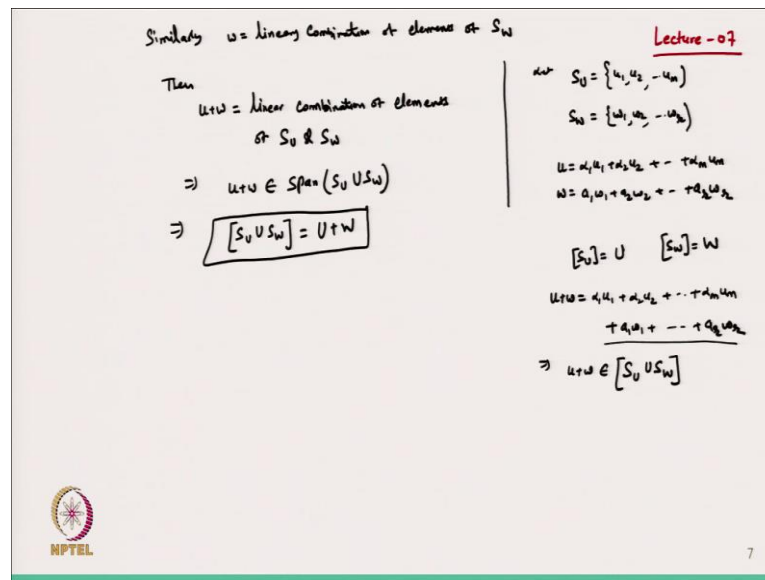 Similarly w = linear Combination of elements of S_W
Lecture - 07
Then
u+w = linear combination of elements
of S_U & S_W
⇒ u+w ∈ Span (S_U ∪ S_W)
⇒ [S_U ∪ S_W] = U+W
let S_U = {u_1, u_2, -- u_m}
S_W = {w_1, w_2, -- w_r}
u = α_1 u_1 + α_2 u_2 + -- + α_m u_m
w = a_1 w_1 + a_2 w_2 + -- + a_r w_r
[S_U] = U [S_W] = W
u+w = α_1 u_1 + α_2 u_2 + -- + α_m u_m
+ a_1 w_1 + --- + a_r w_r
⇒ u+w ∈ [S_U ∪ S_W]
NPTEL
7